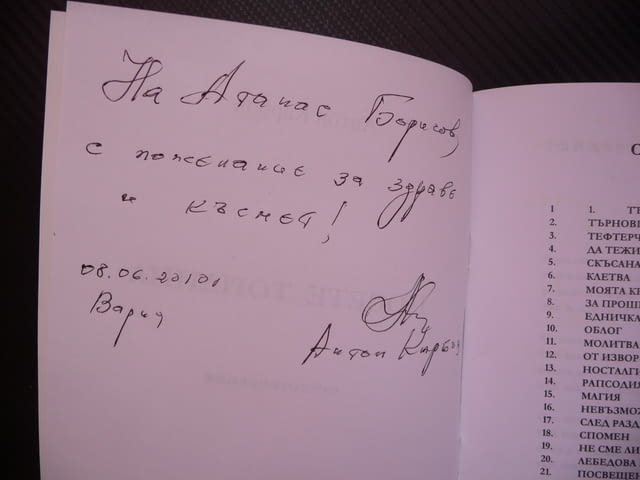 На Атанас Борисов,
с пожелание за здраве
и късмет!
08.06.2010г
Варна
Антон
1 1. ТЪ
2. ТЪРНОВ
3. ТЕФТЕРЧ
4. ДА ТЕЖИ
5. СКЪСАНА
6. КЛЕТВА
7. МОЯТА КР
8. ЗА ПРОШ
9. ЕДНИЧКА
10. ОБЛОГ
11. МОЛИТВА
12. ОТ ИЗВОР
13. НОСТАЛГИ
14. РАПСОДИ
15. МАГИЯ
16. НЕВЪЗМОЖ
17. СЛЕД РАЗД
18. СПОМЕН
19. НЕ СМЕ ЛИ
20. ЛЕБЕДОВА
21. ПОСВЕЩЕН